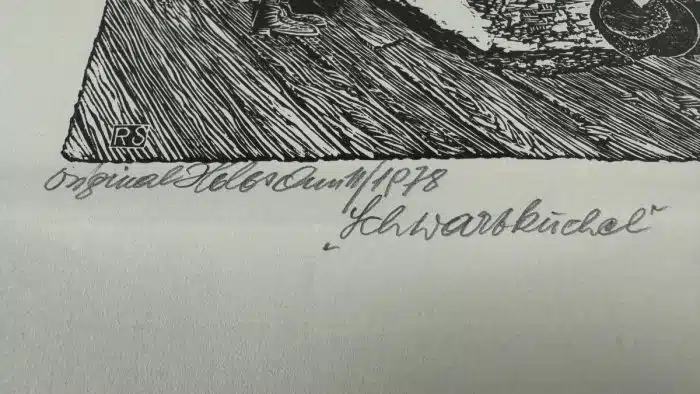 RS
Original Holzschnitt/1978
„Schwarzküchel"